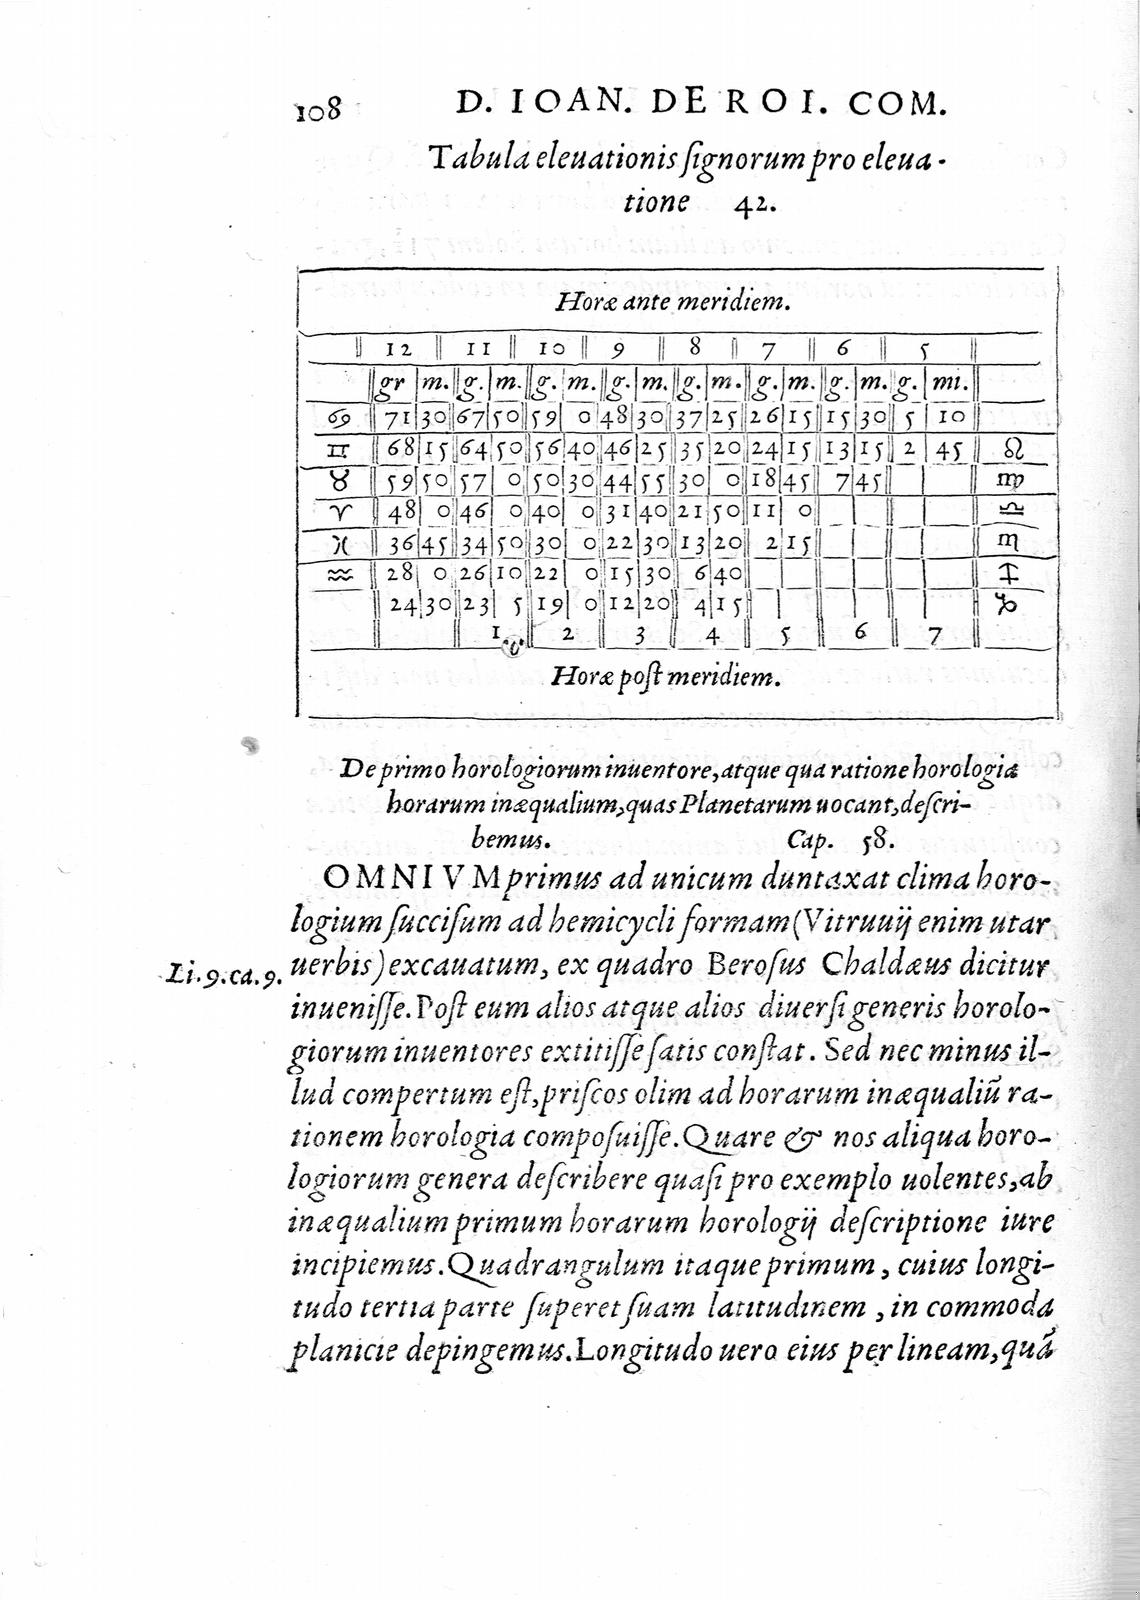 108 D. IOAN. DE ROI. COM.
Tabula eleuationis ſignorum pro eleua-
tione 42.
Horæ ante meridiem.
12 11 10 9 8 7 6 5
gr m. g. m. g. m. g. m. g. m. g. m. g. m. g. mi.
♋ 71 30 67 50 59 0 48 30 37 25 26 15 15 30 5 10
♊ 68 15 64 50 56 40 46 25 35 20 24 15 13 15 2 45 ♌
♉ 59 50 57 0 50 30 44 55 30 0 18 45 7 45 ♍
♈ 48 0 46 0 40 0 31 40 21 50 11 0 ♎
♓ 36 45 34 50 30 0 22 30 13 20 2 15 ♏
♒ 28 0 26 10 22 0 15 30 6 40 ♐
24 30 23 5 19 0 12 20 4 15 ♑
1 2 3 4 5 6 7
Horæ poſt meridiem.
De primo horologiorum inuentore, atque qua ratione horologia
horarum inæqualium, quas Planetarum uocant, deſcri-
bemus. Cap. 58.
OMNIVM primus ad unicum duntaxat clima horo-
logium ſucciſum ad hemicycli formam (Vitruuij enim utar
Li. 9. ca. 9. uerbis) excauatum, ex quadro Beroſus Chaldæus dicitur
inueniſſe. Poſt eum alios atque alios diuerſi generis horolo-
giorum inuentores extitiſſe ſatis conſtat. Sed nec minus il-
lud compertum eſt, priſcos olim ad horarum inæqualiũ ra-
tionem horologia compoſuiſſe. Quare & nos aliqua horo-
logiorum genera deſcribere quaſi pro exemplo uolentes, ab
inæqualium primum horarum horologij deſcriptione iure
incipiemus. Quadrangulum itaque primum, cuius longi-
tudo tertia parte ſuperet ſuam latitudinem, in commoda
planicie depingemus. Longitudo uero eius per lineam, quã